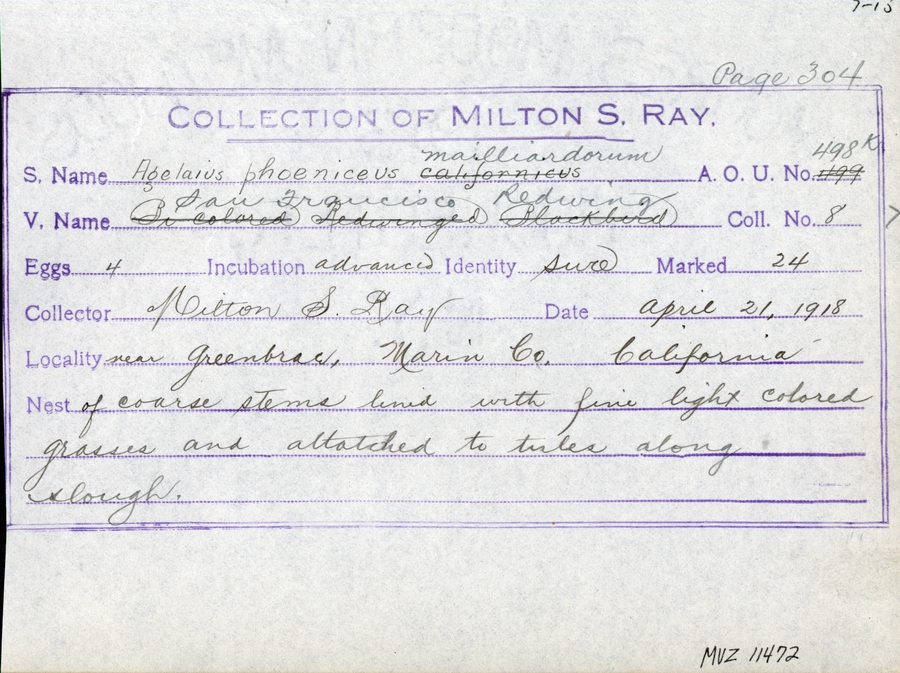 7-13
Page 304
COLLECTION OF MILTON S. RAY.
mailliardorum 498k
S. Name Agelaius phoeniceus californicus A. O. U. No. 499
San Francisco Redwing
V. Name (Bi colored) Redwinged (Blackbird) Coll. No. 8
Eggs 4 Incubation advanced Identity sure Marked 24
Collector Milton S. Ray Date April 21, 1918
Locality near Greenbrae, Marin Co. California
Nest of coarse stems lined with fine light colored
grasses and attatched to tules along
slough.
MVZ 11472